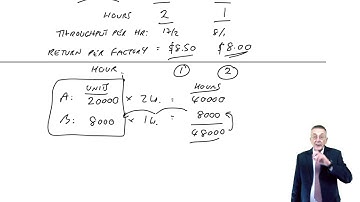 HOURS 2 1
THROUGHPUT PER HR: 17/2 8/1
RETURN PER FACTORY = $8.50 $8.00
HOUR. ① ②
UNITS HOURS
A: 20000 × 2u. = 40000
B: 8000 × 1u. = 8000
48000